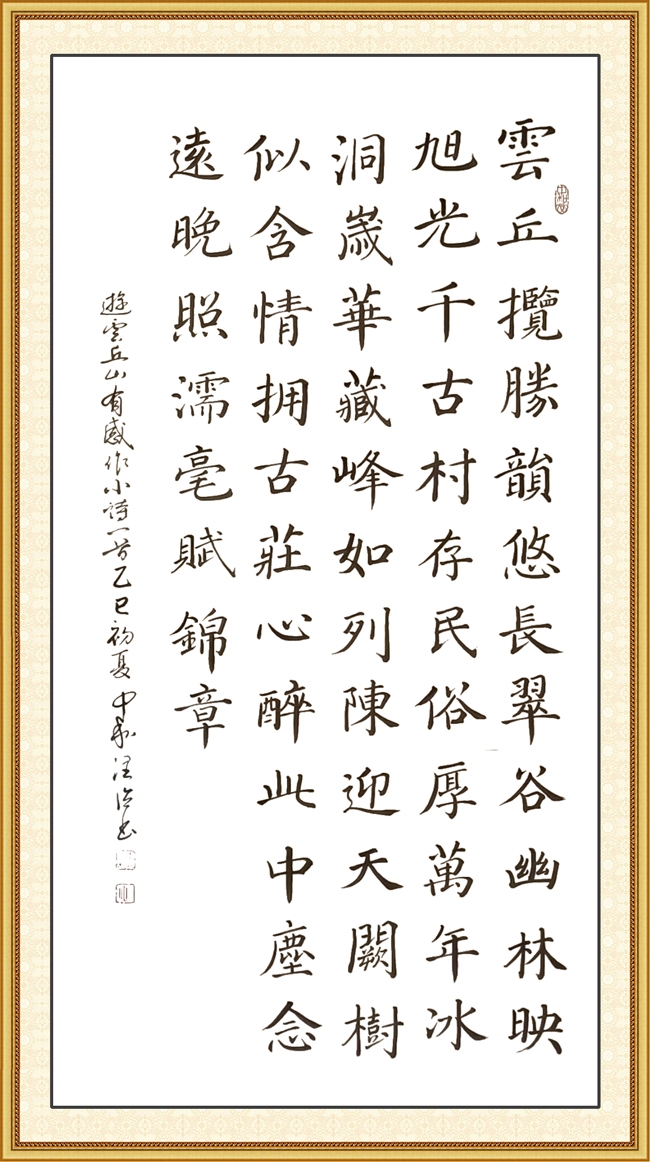 雲丘攬勝韻悠長翠谷幽林映
旭光千古村存民俗厚萬年冰
洞嵗華藏峰如列陳迎天闕樹
似含情拥古莊心醉此中塵念
遠晚照濡毫賦錦章
遊雲丘山有感作小詩一首乙巳初夏中和汪